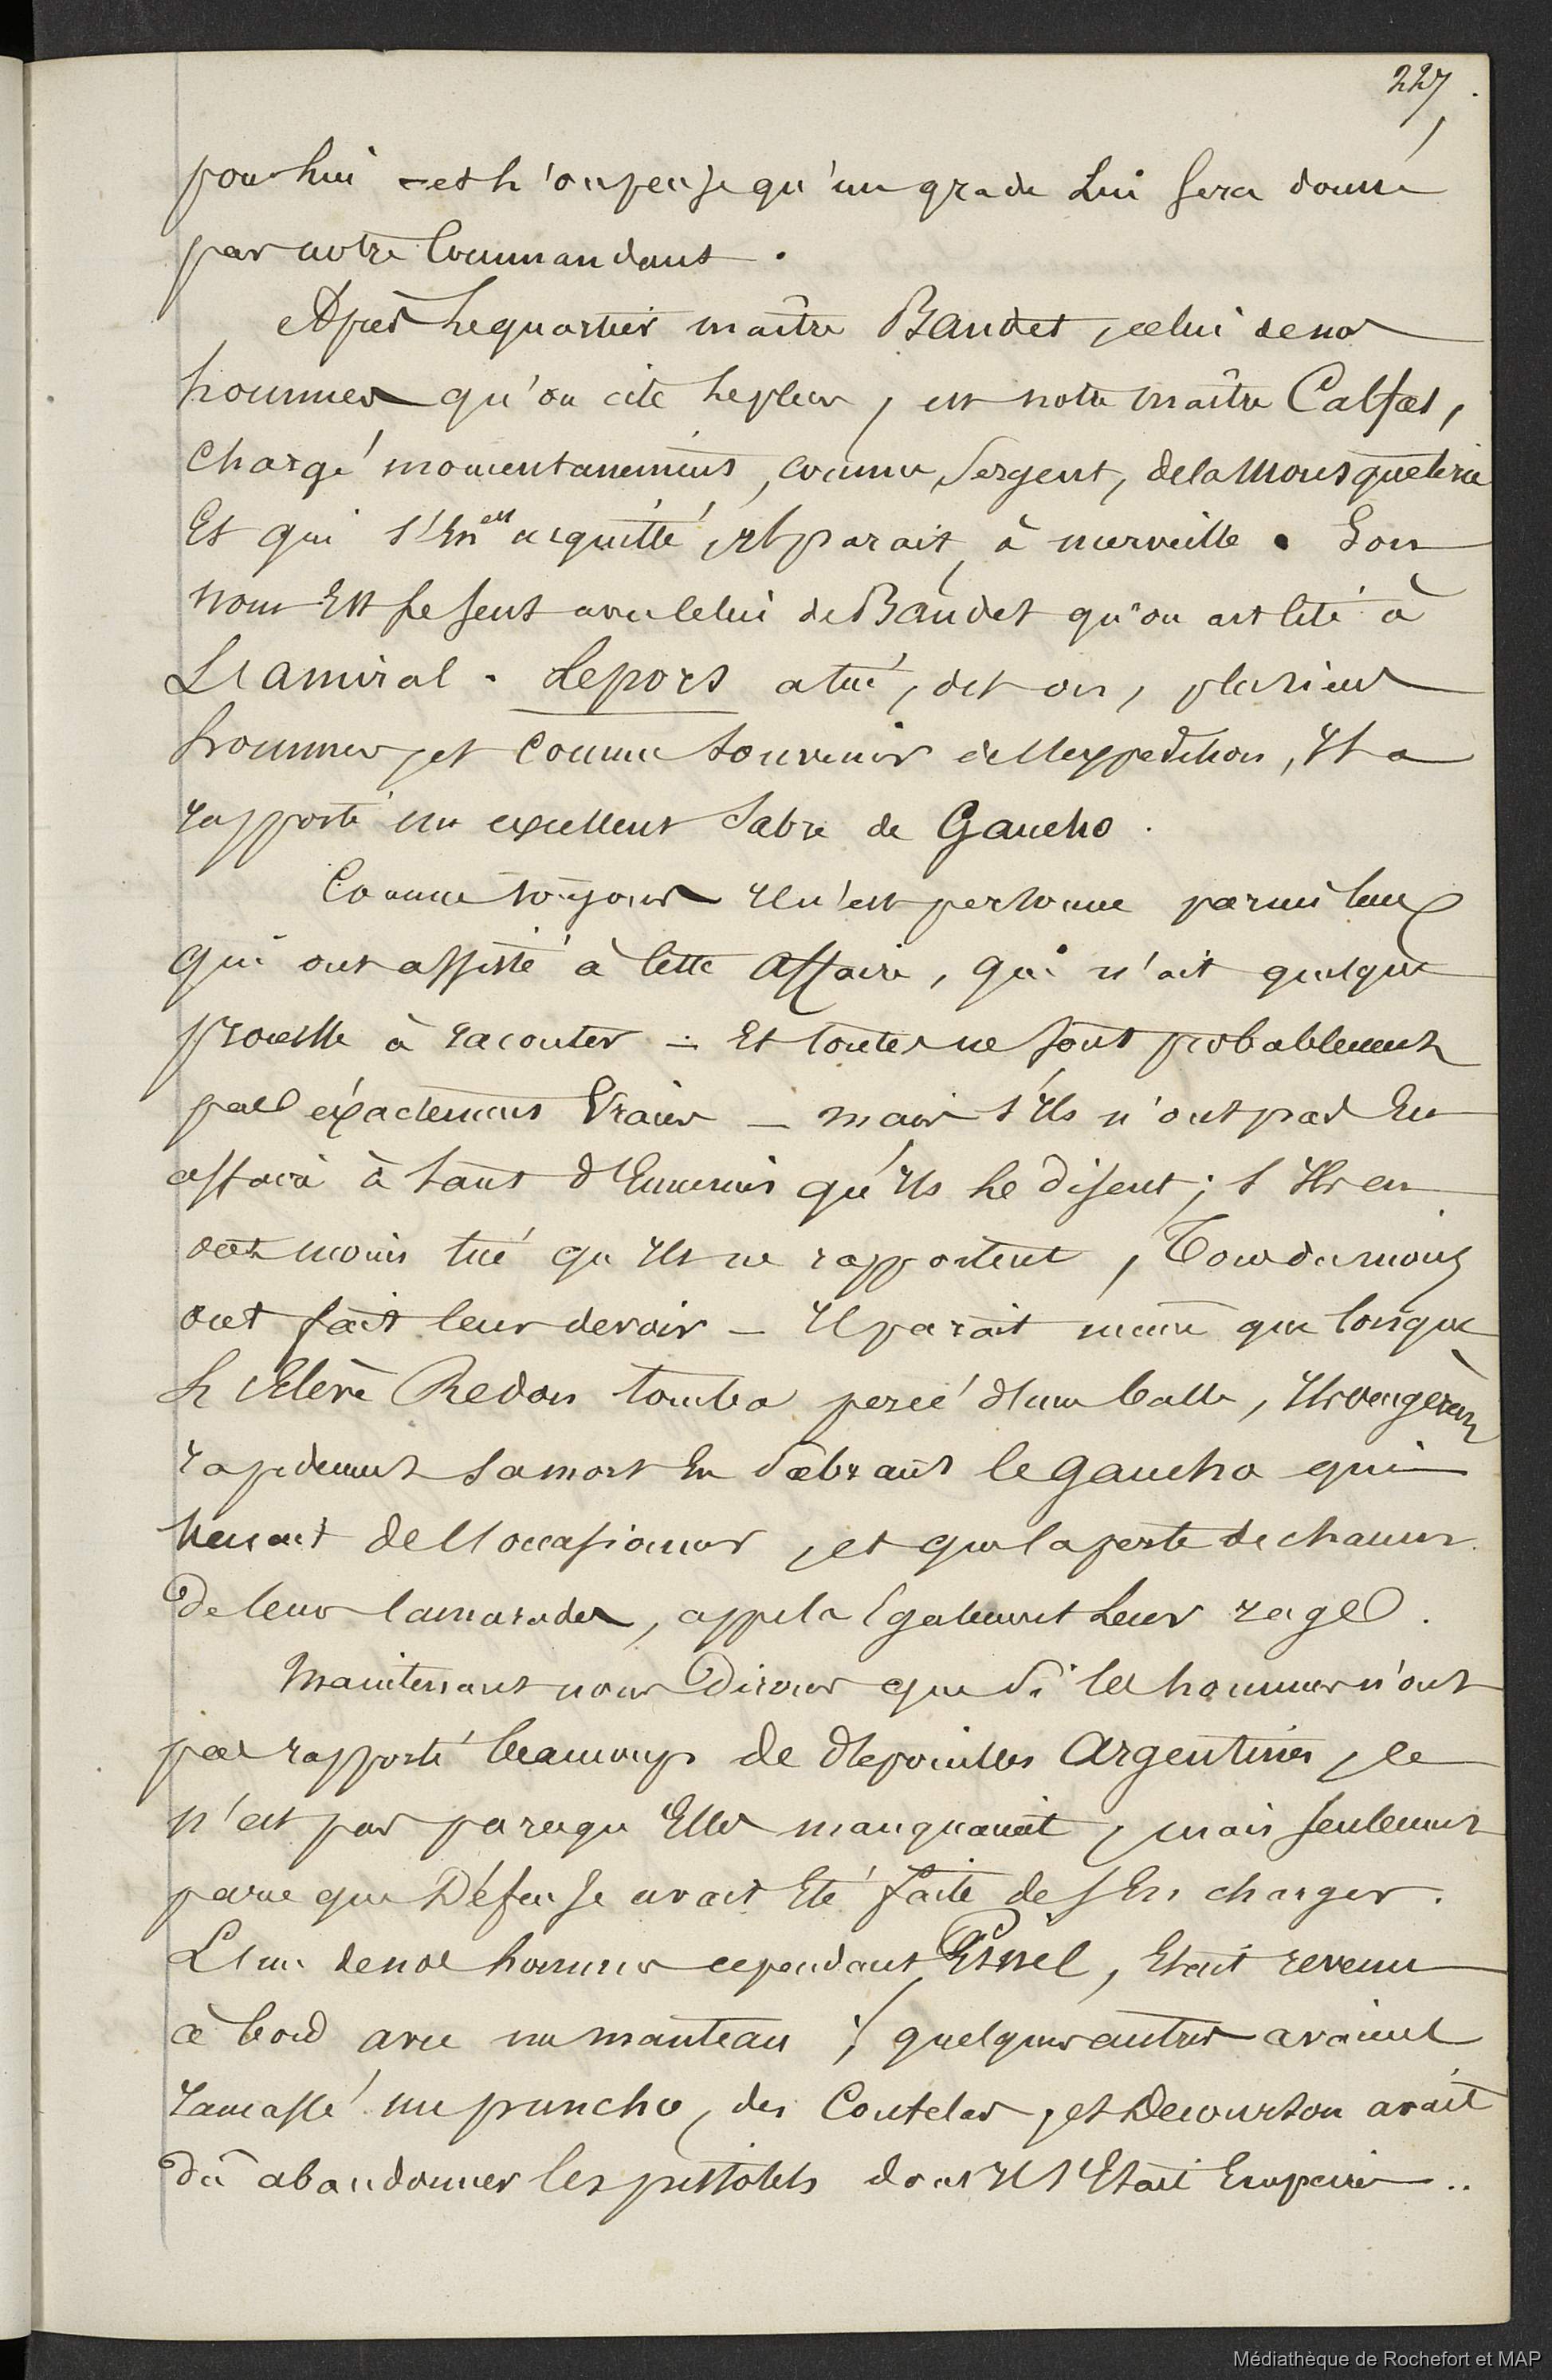 227.
pour lui - et l'on pense qu'un grade Lui sera donné
par notre Commandant.
Après le quartier maître Baudet, celui de nos
hommes qu'on cite le plus, est notre maître Calfat,
chargé momentanément, comme Sergent, de la Mousqueterie
Et qui s'En est acquitté, Il parait, à merveille. Son
nom Est présent avec Celui de Baudet qu'on a cité à
L'amiral. Lepors a tué, dit on, plusieurs
hommes, et Comme Souvenir de l'expedition, Il a
rapporté un excellent Sabre de Gaucho.
Comme toujours Il n'est personne parmi Ceux
qui ont assisté à Cette Affaire, qui n'ait quelque
prouesse à raconter - Et toutes ne sont probablement
pas éxactement Vraies - mais s'Ils n'ont pas Eu
affaire à tant d'Ennemis qu'Ils le disent ; s'Ils en
ont moins tué qu'Ils ne rapportent, Tous du moins
ont fait leur devoir - Il parait même que lorsque
L'Elève Redon tomba percé d'une balle, Ils vengèrent
rapidement sa mort En Sabrant le Gaucho qui
Venait de l'occasionner, et que la perte de chacun
De leurs Camarades, appela Egalement Leur rage.
Maintenant nous Dirons que Si les hommes n'ont
pas rapporté beaucoup de dépouilles Argentines, ce
n'est pas parcequ'Elles manquaient, mais seulement
parce que Défense avait Eté faite de s'En charger.
L'un de nos hommes cependant, Esnel, Etait revenu
à bord avec un manteau ; quelques autres avaient
ramassé un puncho, des Coutelas, et Decourson avait
Dû abandonner les pistolets dont Il s'Etait Emparé..
Médiathèque de Rochefort et MAP